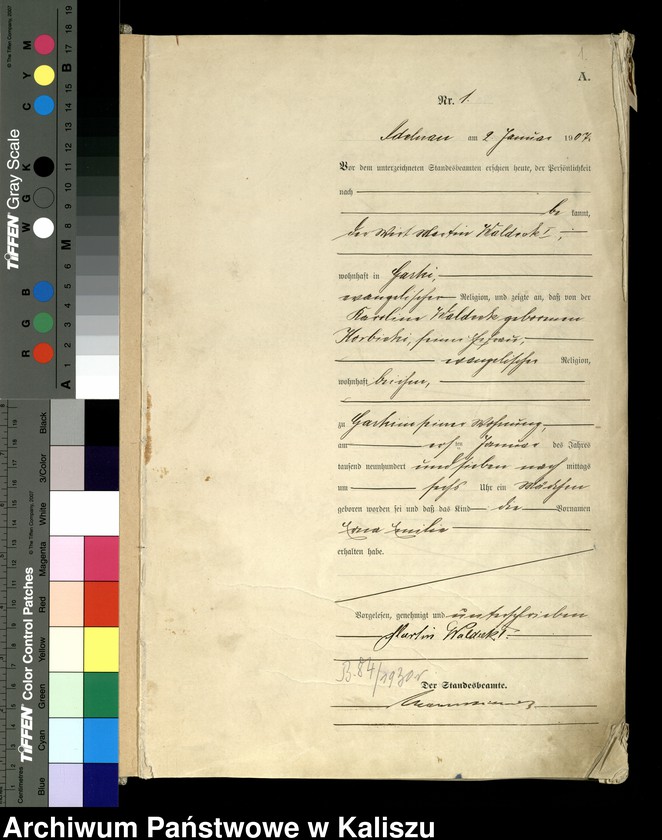 A.
Nr. 1.
Adelnau am 2 Januar 1907.
Vor dem unterzeichneten Standesbeamten erschien heute, der Persönlichkeit
nach
be kannt,
der Wirt Martin Waldeck I.,
wohnhaft in
evangelischer Religion, und zeigte an, daß von der
Karoline Waldeck geborenen
seiner Ehefrau,
evangelischer Religion,
wohnhaft bei ihm,
zu seiner Wohnung,
am ersten Januar des Jahres
tausend neunhundert und sieben nach mittags
um sechs Uhr ein Mädchen
geboren worden sei und daß das Kind die Vornamen
Emilie
erhalten habe.
Vorgelesen, genehmigt und unterschrieben
Martin Waldeck I.
B. 84/1930
Der Standesbeamte.
TIFFEN Gray Scale
© The Tiffen Company, 2007
R G B W G K C Y M
A 1 2 3 4 5 6 M 8 9 10 11 12 13 14 15 B 17 18 19
TIFFEN Color Control Patches
© The Tiffen Company, 2007
Centimetres
Blue Cyan Green Yellow Red Magenta White 3/Color Black
Archiwum Państwowe w Kaliszu